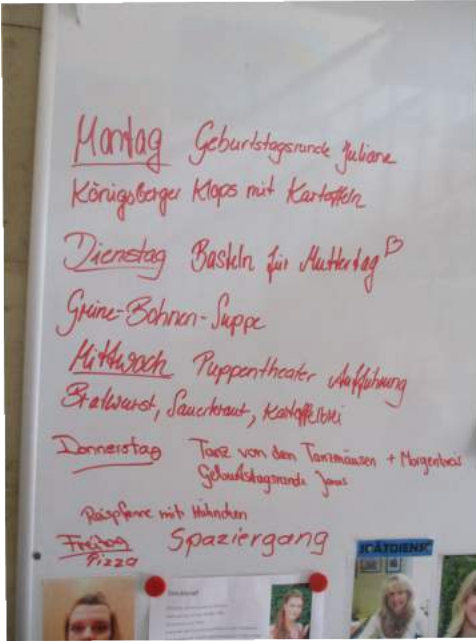 Montag Geburtstagsrunde Juliane
Königsberger Klops mit Kartoffeln
Dienstag Basteln für Muttertag
Grüne-Bohnen-Suppe
Mittwoch Puppentheater Aufführung
Bratwurst, Sauerkraut, Kartoffelbrei
Donnerstag Tanz von den Tanzmäusen + Morgenkreis
Geburtstagsrunde Jonas
Reispfanne mit Hähnchen
Freitag Spaziergang
Pizza